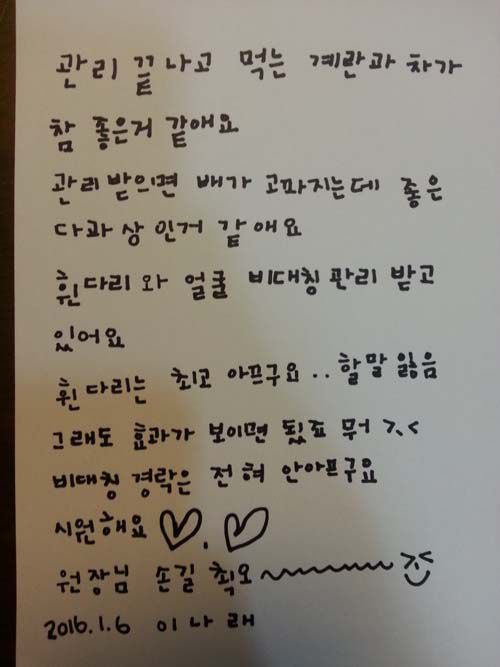 관리 끝나고 먹는 계란과 차가
참 좋은거 같애요
관리받으면 배가 고파지는데 좋은
다과상인거 같애요
휜다리와 얼굴 비대칭관리 받고
있어요
휜다리는 최고 아프구요.. 할말 잃음
그래도 효과가 보이면 됬죠 뭐 ㅋ.<
비대칭 경락은 전혀 안아프구요
시원해요 ♡.♡
원장님 손길 최오~ >.<
2016.1.6 이나래